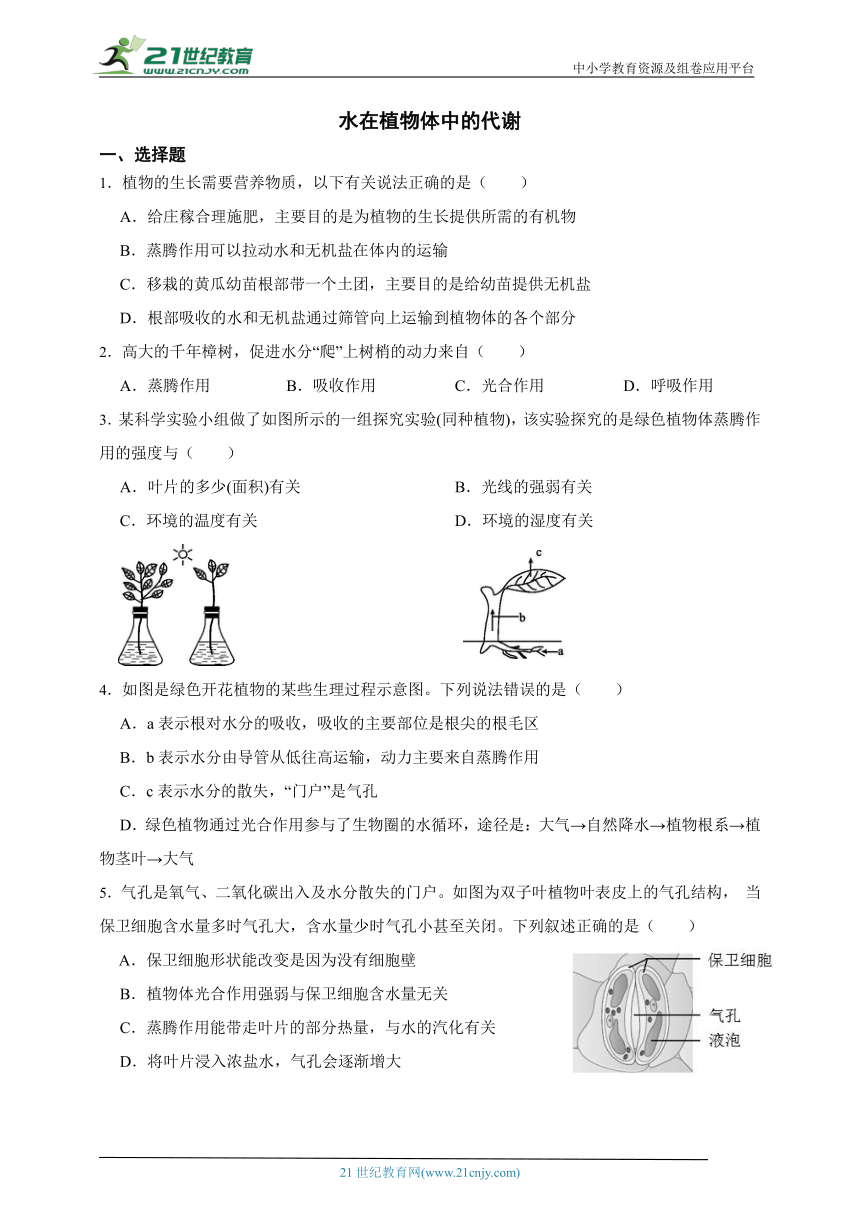 21世纪教育
WWW.21CNJY.COM
中小学教育资源及组卷应用平台
水在植物体中的代谢
一、选择题
1．植物的生长需要营养物质，以下有关说法正确的是（　　）
A．给庄稼合理施肥，主要目的是为植物的生长提供所需的有机物
B．蒸腾作用可以拉动水和无机盐在体内的运输
C．移栽的黄瓜幼苗根部带一个土团，主要目的是给幼苗提供无机盐
D．根部吸收的水和无机盐通过筛管向上运输到植物体的各个部分
2．高大的千年樟树，促进水分“爬”上树梢的动力来自（　　）
A．蒸腾作用　　B．吸收作用　　C．光合作用　　D．呼吸作用
3．某科学实验小组做了如图所示的一组探究实验(同种植物)，该实验探究的是绿色植物体蒸腾作
用的强度与（　　）
A．叶片的多少(面积)有关　　B．光线的强弱有关
C．环境的温度有关　　D．环境的湿度有关
c
b
a
4．如图是绿色开花植物的某些生理过程示意图。下列说法错误的是（　　）
A．a 表示根对水分的吸收，吸收的主要部位是根尖的根毛区
B．b 表示水分由导管从低往高运输，动力主要来自蒸腾作用
C．c 表示水分的散失，“门户”是气孔
D．绿色植物通过光合作用参与了生物圈的水循环，途径是：大气→自然降水→植物根系→植
物茎叶→大气
5．气孔是氧气、二氧化碳出入及水分散失的门户。如图为双子叶植物叶表皮上的气孔结构， 当
保卫细胞含水量多时气孔大，含水量少时气孔小甚至关闭。下列叙述正确的是（　　）
A．保卫细胞形状能改变是因为没有细胞壁
B．植物体光合作用强弱与保卫细胞含水量无关
C．蒸腾作用能带走叶片的部分热量，与水的汽化有关
D．将叶片浸入浓盐水，气孔会逐渐增大
保卫细胞
气孔
液泡
21世纪教育网(www.21cnjy.com)